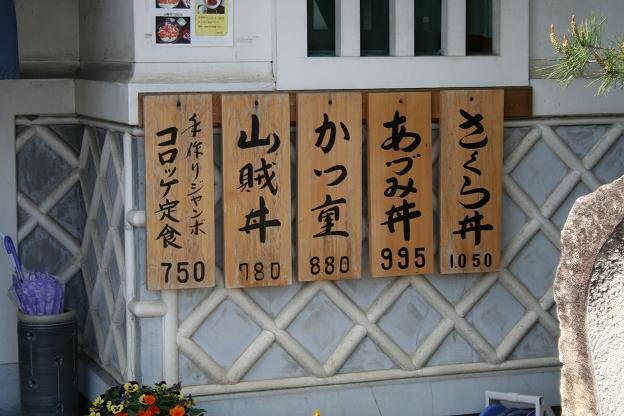 さくら丼
1.050
あづみ丼
995
かつ重
880
山賊丼
780
手作りジャンボ
コロッケ定食
750